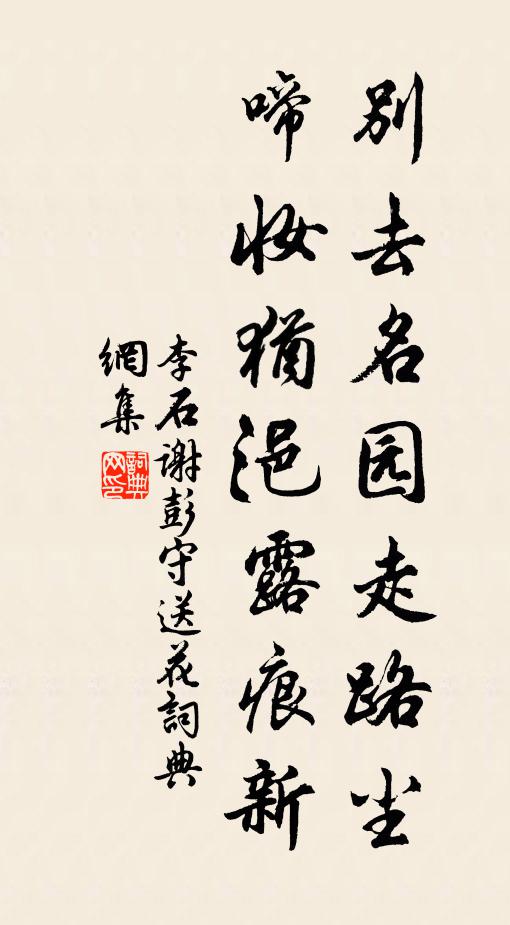 别去名园走路尘
啼妆犹浥露痕新
李石谢彭守送花詞典
網集
詞典网印